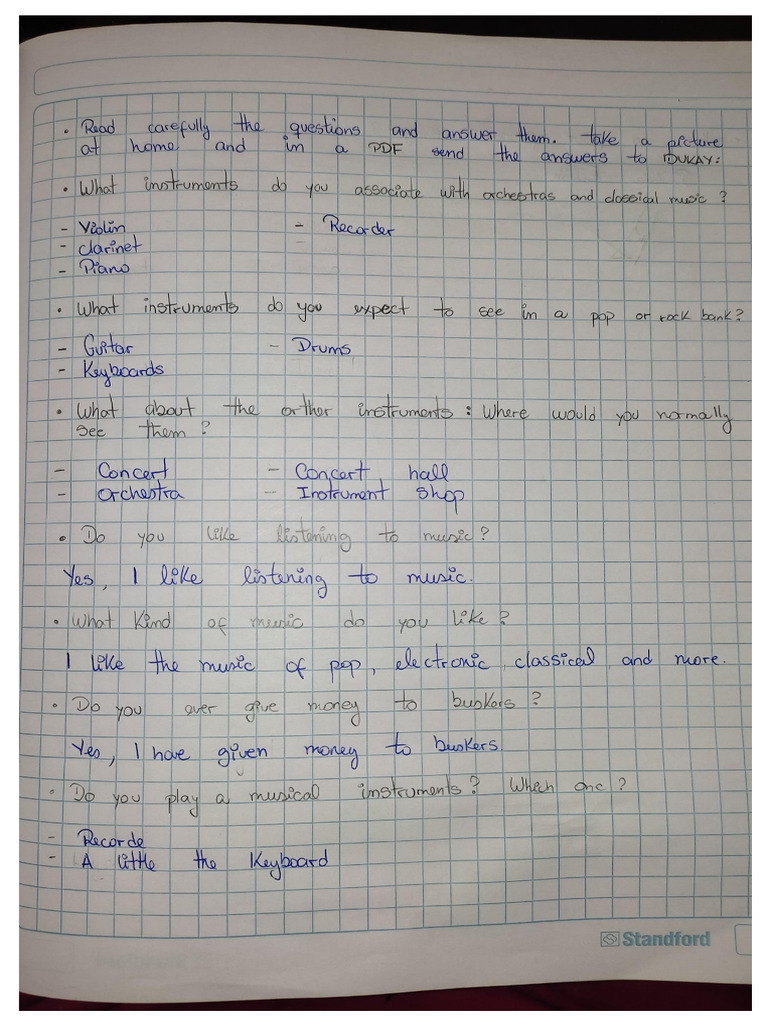 • Read carefully the questions and answer them. take a picture
at home and in a PDF send the answers to IDUKAY:
• What instruments do you associate with orchestras and classical music?
- Violin - Recorder
- clarinet
- Piano
• What instruments do you expect to see in a pop or rock bank?
- Guitar - Drums
- Keyboards
• What about the orther instruments: Where would you normally
see them?
- Concert - Concert hall
- Orchestra - Instrument shop
• Do you like listening to music?
Yes, I like listening to music.
• What Kind of music do you like?
I like the music of pop, electronic, classical and more.
• Do you ever give money to buskers?
Yes, I have given money to buskers.
• Do you play a musical instruments? Which one?
- Recorde
- A little the Keyboard
Standford